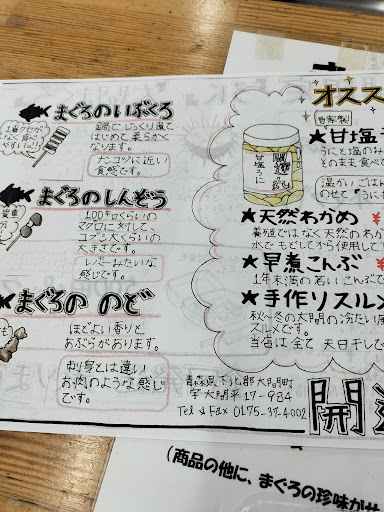 まぐろのいぶくろ
1番クセが
なく食べ
やすい!!
鍋でじっくり煮て
はじめて柔らかく
なります。
ナンコツに近い
食感です。
まぐろのしんぞう
100キロくらいの
マグロに対して、
コブシ大くらいの
大きさです。
レバーみたいな
感じです。
まぐろの のど
ほどよい香りと
あぶらがあります。
刺身とは違い
お肉のような感じ
です。
青森県下北郡大間町
字大間平17-984
Tel & Fax 0175-37-4002
オスス
自家製
★甘塩
うにと塩のみ
そのまま食べ
甘塩うに
温かいごはん
のせて
★天然わかめ ¥
養殖ではなく天然のわか
水でもどしてから使用して
★早煮こんぶ ¥
1年未満の若いこんぶで
★手作りスルメ
秋〜冬の大間の冷たい風
スルメです。
当店は全て 天日干しで
開運
(商品の他に、まぐろの珍味がサ